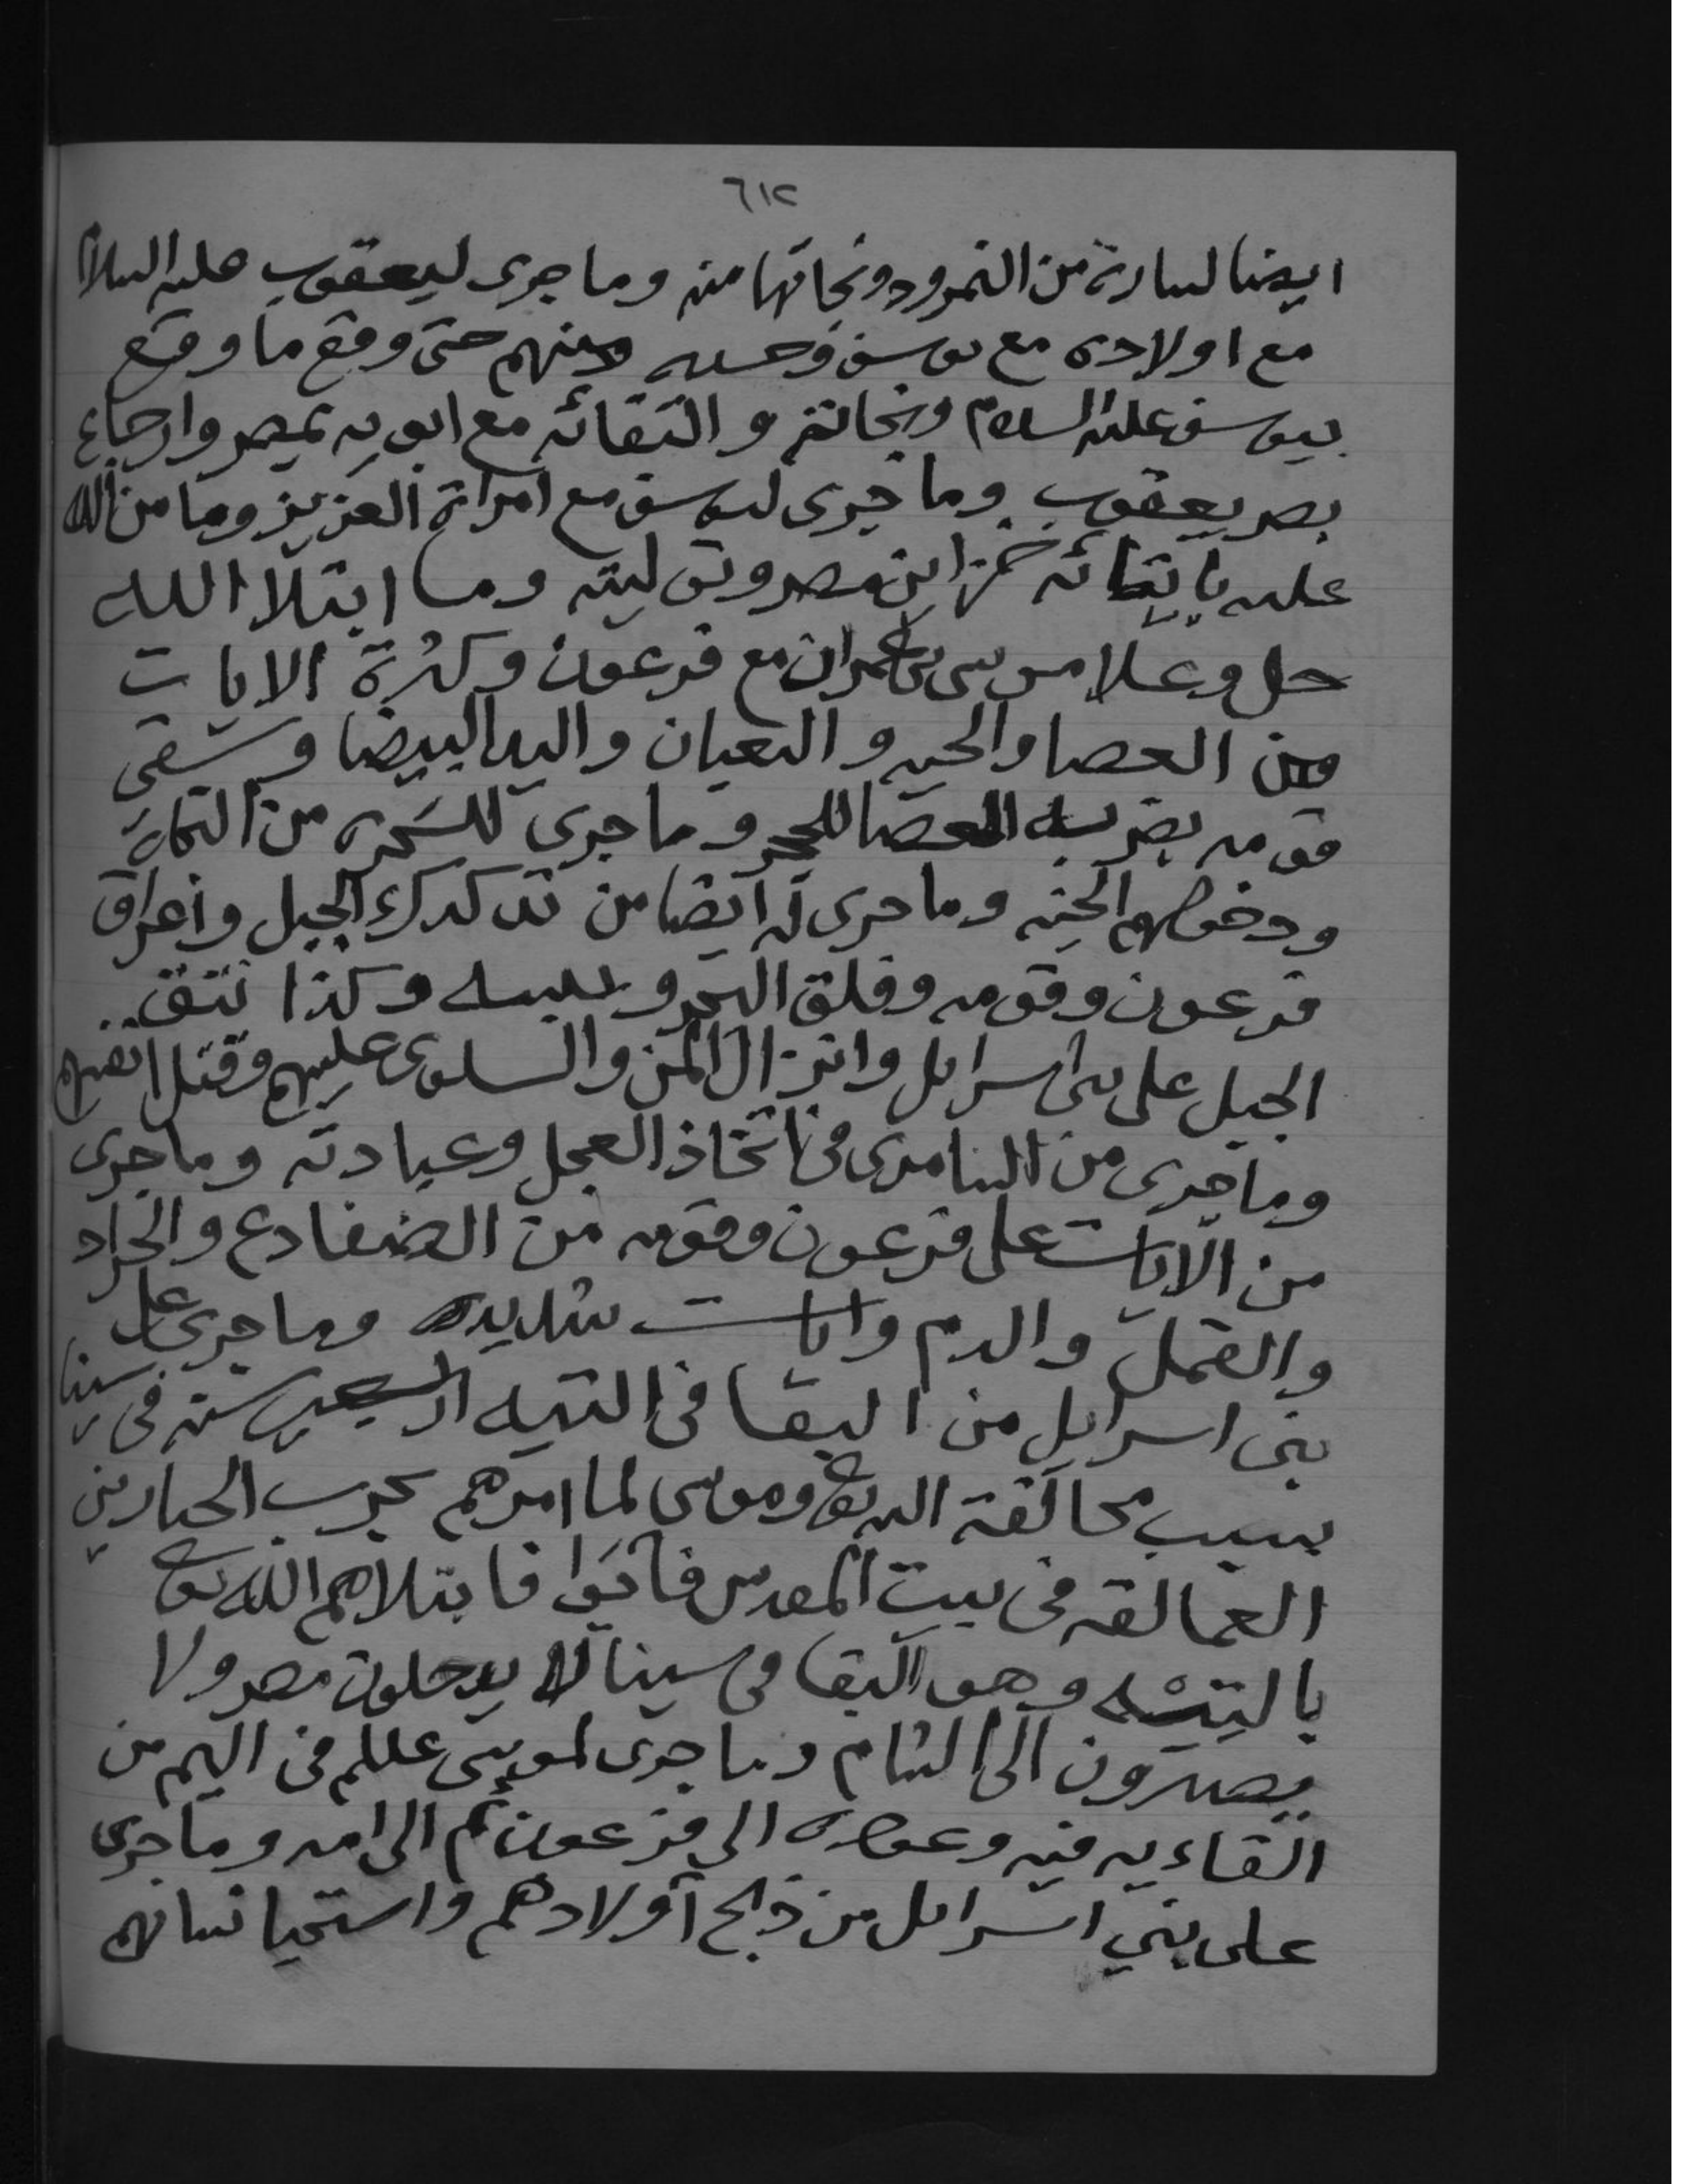 ٦١٢
ايضا لسارة من النمرود ونجاتها منه وما جرى ليعقوب عليه السلام
مع اولاده مع يوسف وحسد منهم حتى وقع ما وقع
بيوسف عليه السلام ونجاته والتقائه مع ابويه بمصر وارجاع
بصر يعقوب وما جرى ليوسف مع امراة العزيز وما من الله
عليه بايتائه خزاين مصر وتوليته وما ابتلا الله
جل وعلا موسى بن عمران مع فرعون وكثرة الايات
من العصا والحيه والثعبان واليد البيضا وسقي
قومه بضربه العصا للحجر وما جرى للسحره من
ودخولهم الجنه وما جرى له ايضا من تدكدك الجبل واغراق
فرعون وقومه وفلق البحر وكذا نتق
الجبل على بني اسرايل وانزال المن والسلوى عليهم وقتل انفسهم
وما جرى من السامري في اتخاذ العجل وعبادته وما جرى
من الايات على فرعون وقومه من الضفادع والجراد
والقمل والدم وايات شديده وما جرى على
بني اسرايل من البقا في التيه اربعين سنه في سينا
بسبب مخالفة الله تع وموسى لما امرهم بحرب الجبارين
العمالقه في بيت المقدس فابوا فابتلاهم الله تع
بالتيه وهو البقا في سينا لا يدخلون مصر ولا
يصيرون الى الشام وما جرى لموسى عللم في اليم من
القاءيه فيه وعوده الى فرعون ثم الى امه وما جرى
على بني اسرايل من ذبح اولادهم واستحيا نسانهم